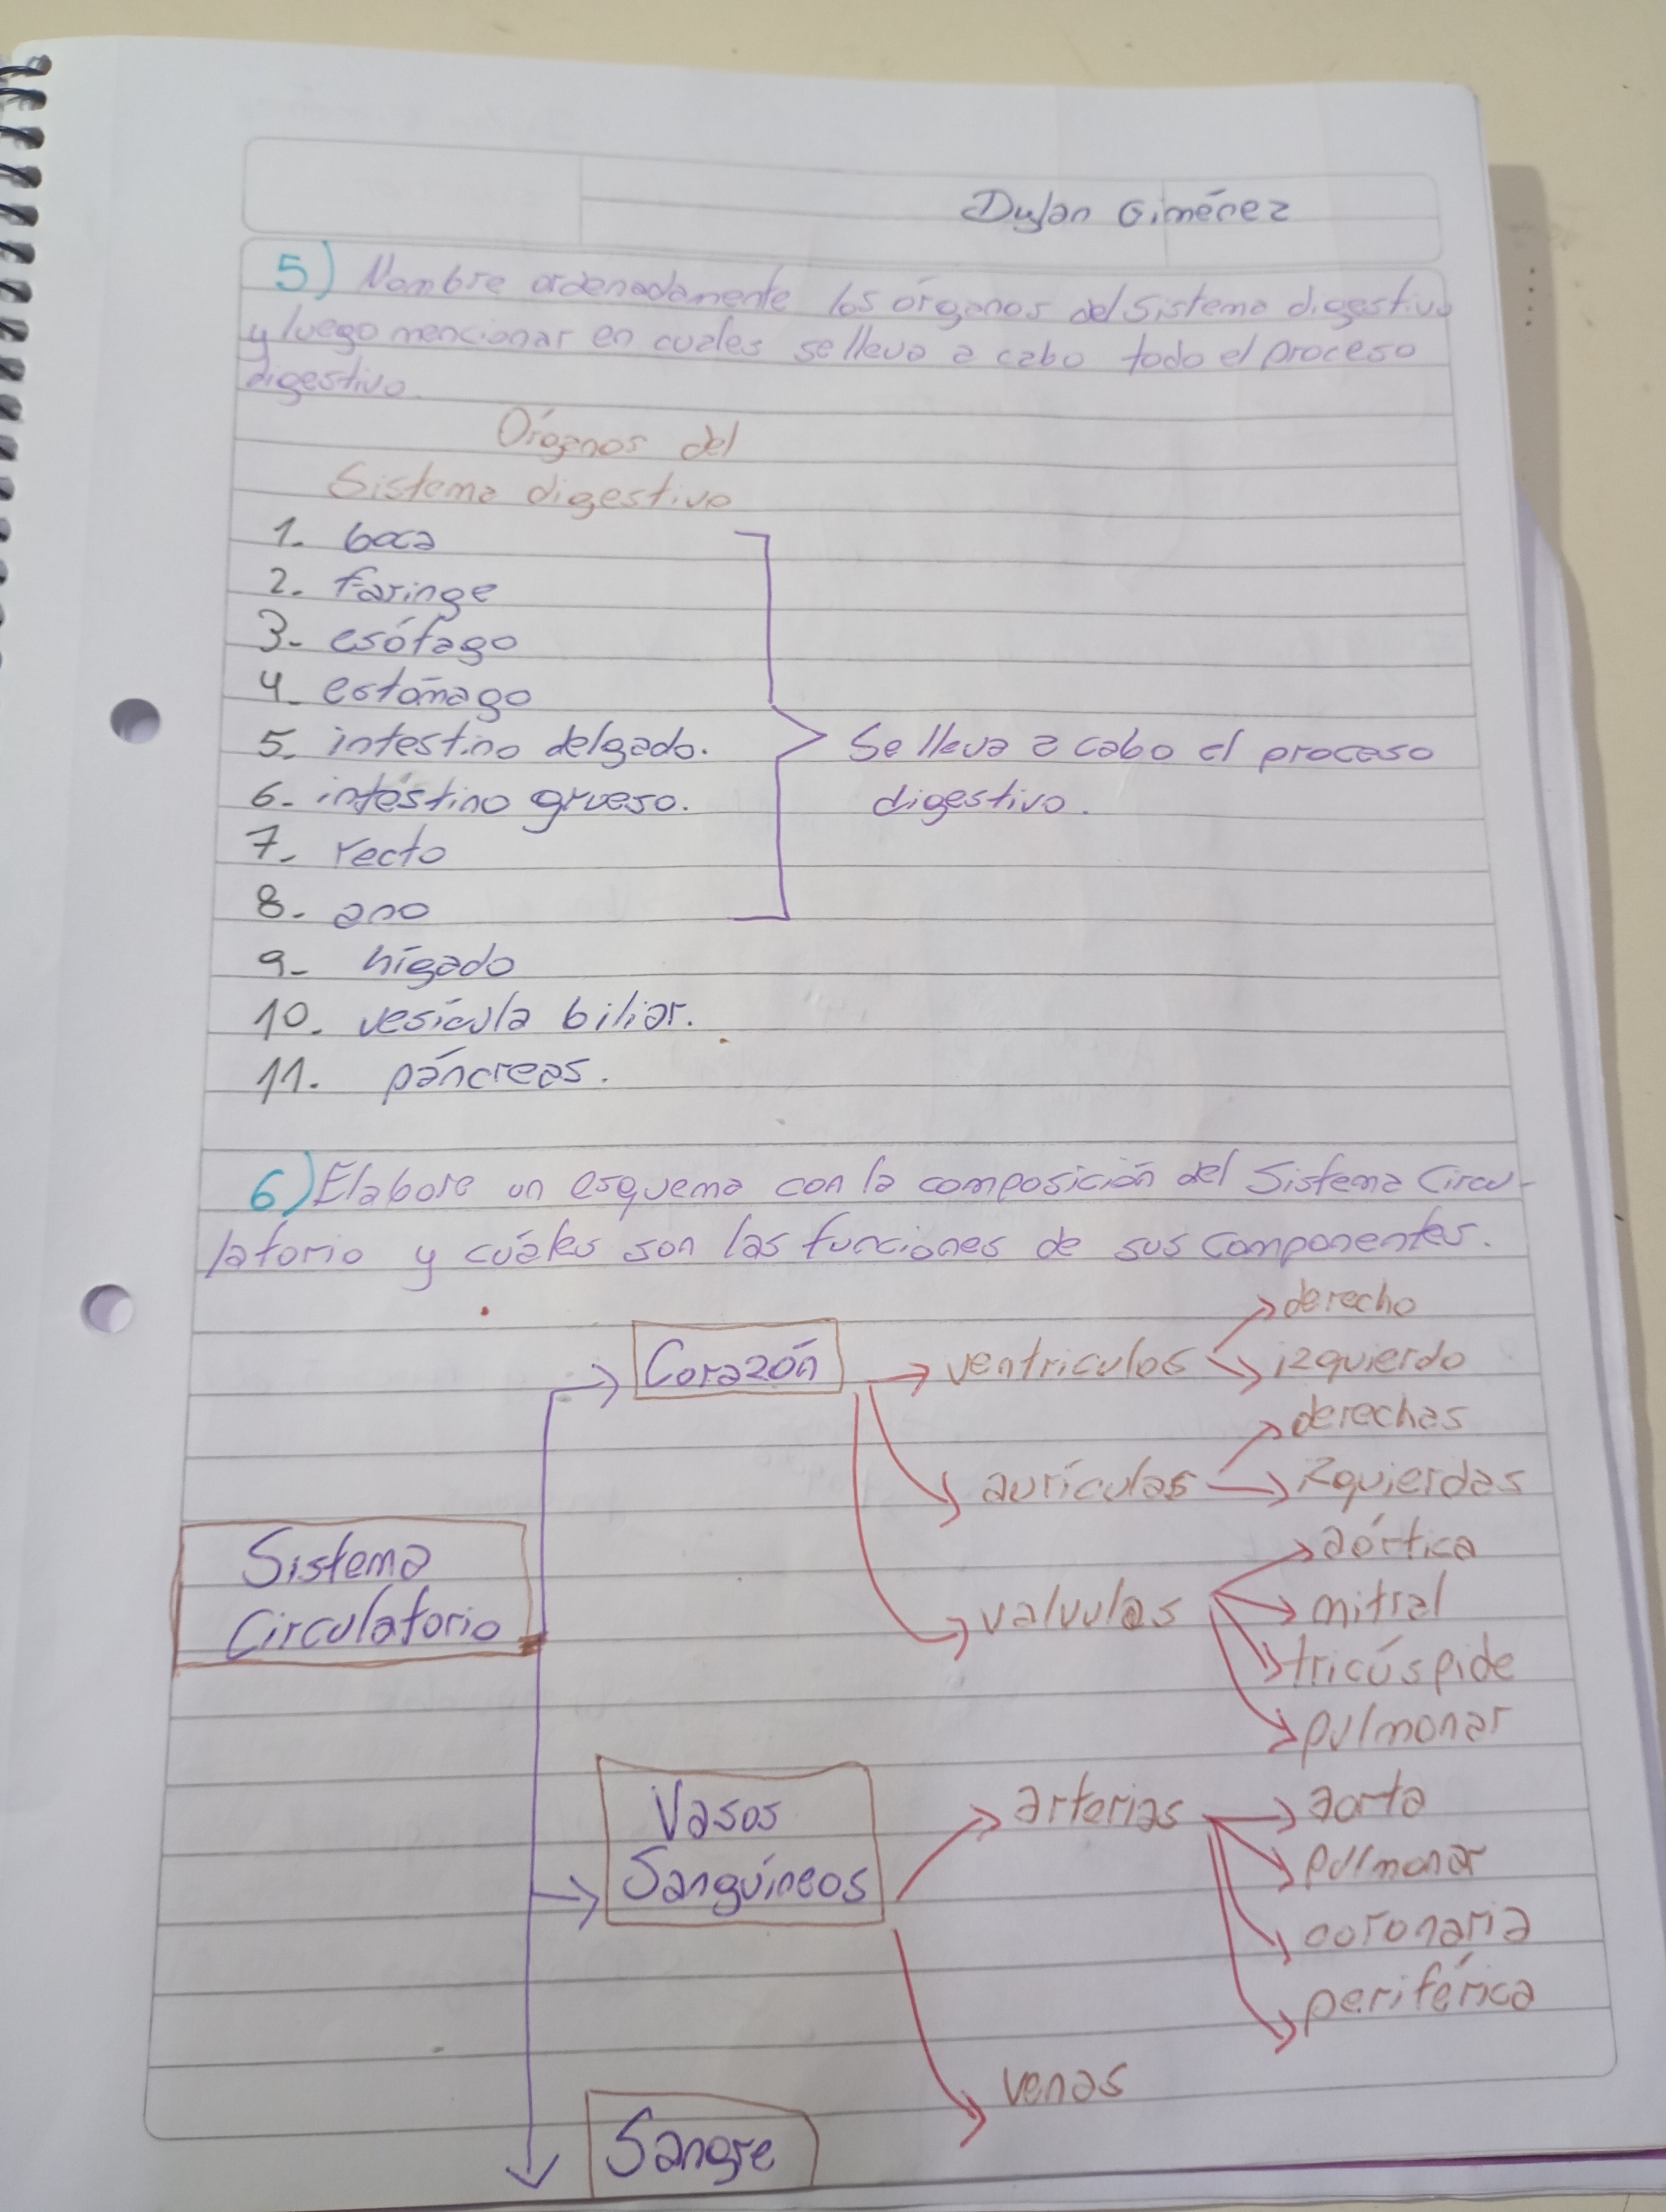 Dylan Giménez
5) Nombre ordenadamente los órganos del Sistema digestivo
y luego mencionar en cuales se lleva a cabo todo el proceso
digestivo.
Órganos del
Sistema digestivo
1. boca
2. faringe
3- esófago
4- estómago
5. intestino delgado.
6- intestino grueso.
7- recto
8- ano
Se lleva a cabo el proceso
digestivo.
9- hígado
10. vesícula biliar.
11. páncreas.
6) Elabore un esquema con la composición del Sistema Circu-
latorio y cuáles son las funciones de sus componentes.
Sistema
Circulatorio
Corazón
ventriculos
derecho
izquierdo
aurículas
derechas
izquierdas
valvulas
aórtica
mitral
tricúspide
pulmonar
Vasos
Sanguíneos
arterias
aorta
pulmonar
coronaria
periférica
venas
Sangre